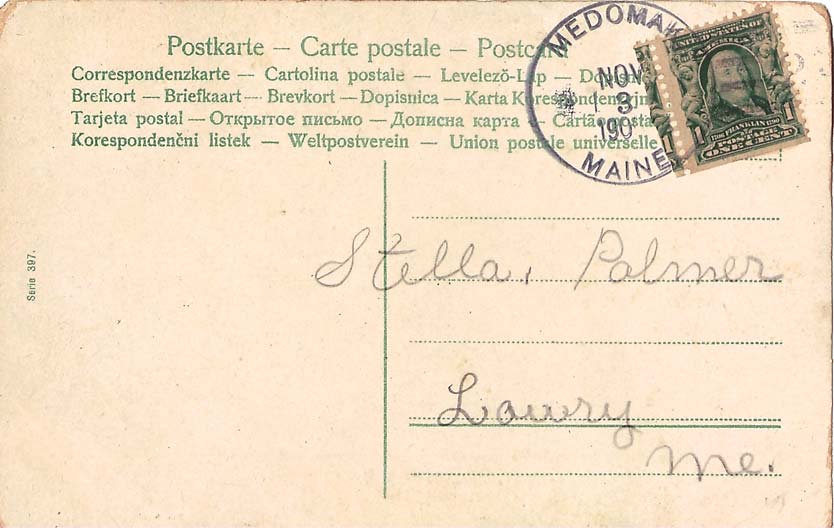 Postkarte – Carte postale – Postcard
Correspondenzkarte – Cartolina postale – Levelező-Lap – Dopisni
Brefkort — Briefkaart — Brevkort — Dopisnica — Karta Korespondencyjna
Tarjeta postal — Открытое письмо — Дописна карта — Cartão postal
Korespondenční listek – Weltpostverein – Union postale universelle
MEDOMAK
NOV
3
190
MAINE
UNITED STATES OF
AMERICA
1706 FRANKLIN 1790
POSTAGE
1 ONE CENT 1
1
Stella, Palmer
Lowry
Me.
Serie 397.